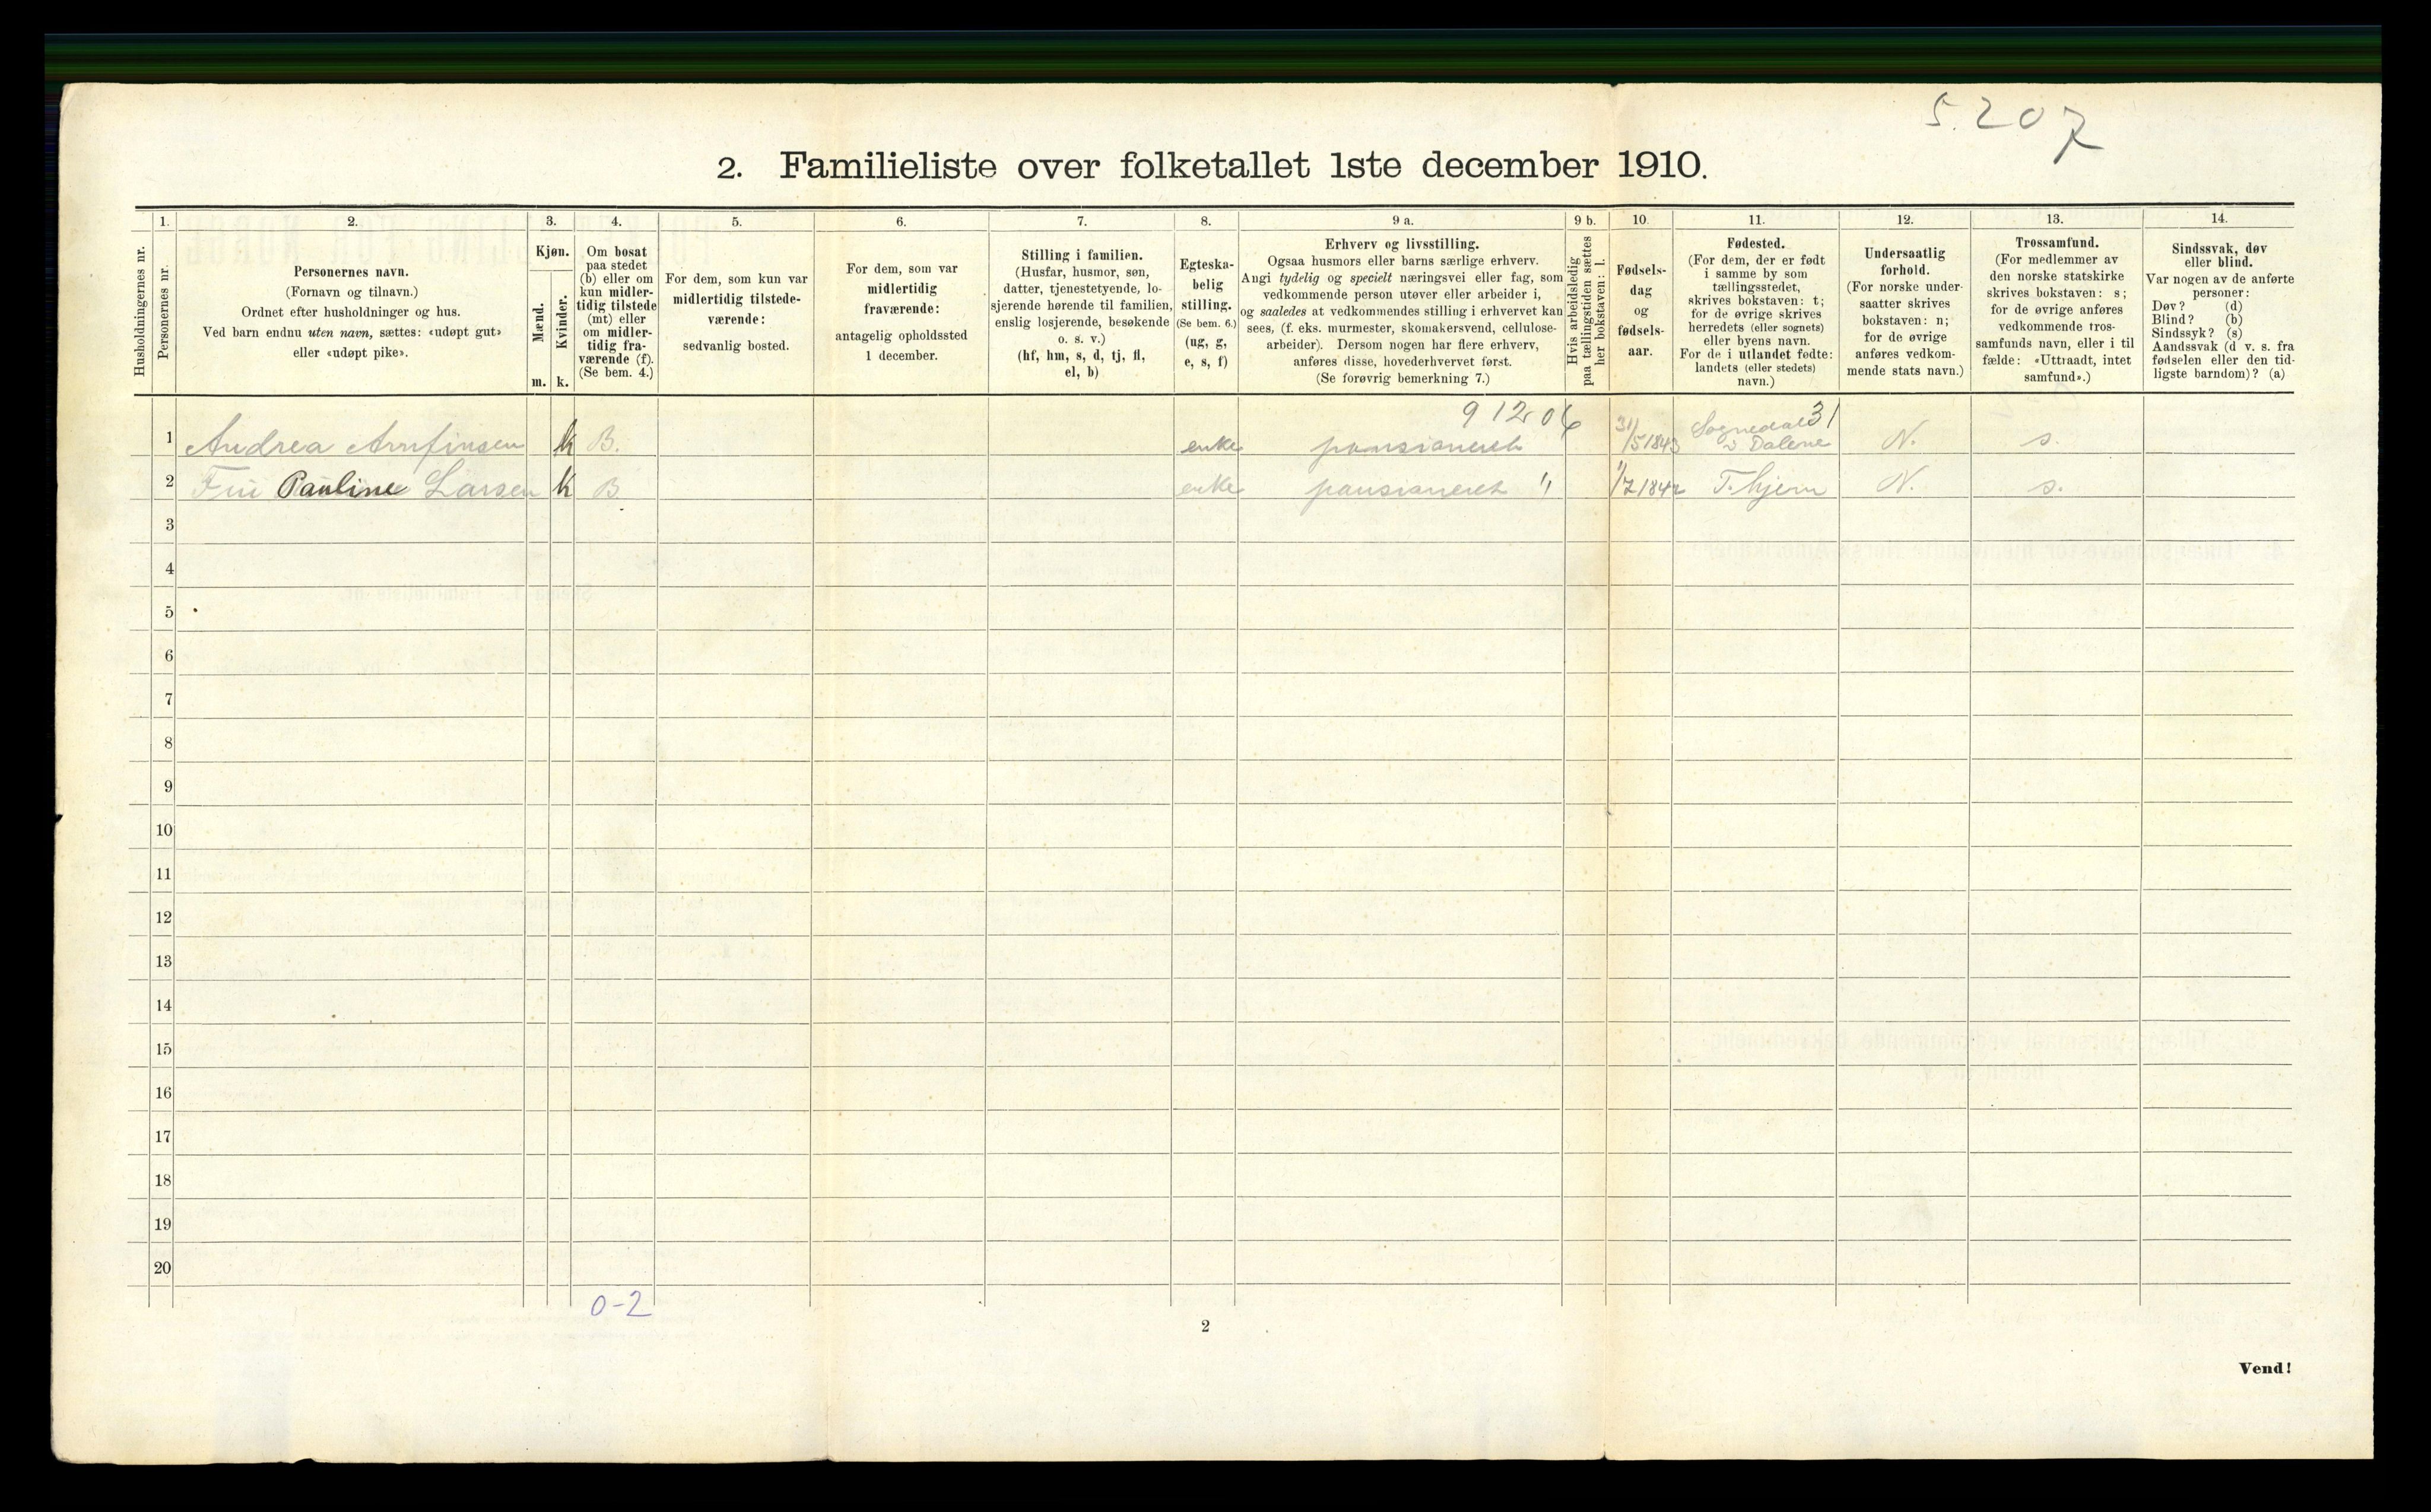 5.207
2. Familieliste over folketallet 1ste december 1910.
Husholdningernes nr.
1.
Personernes nr.
2.
Personernes navn.
(Fornavn og tilnavn.)
Ordnet efter husholdninger og hus.
Ved barn endnu uten navn, sættes: «udøpt gut»
eller «udøpt pike».
3.
Kjøn.
Mænd.
m.
Kvinder.
k.
4.
Om bosat
paa stedet
(b) eller om
kun midler-
tidig tilstede
(mt) eller
om midler-
tidig fra-
værende (f).
(Se bem. 4.)
5.
For dem, som kun var
midlertidig tilstede-
værende:
sedvanlig bosted.
6.
For dem, som var
midlertidig
fraværende:
antagelig opholdssted
1 december.
7.
Stilling i familien.
(Husfar, husmor, søn,
datter, tjenestetyende, lo-
sjerende hørende til familien,
enslig losjerende, besøkende
o. s. v.)
(hf, hm, s, d, tj, fl,
el, b)
8.
Egteska-
belig
stilling.
(Se bem. 6.)
(ug, g,
e, s, f)
9 a.
Erhverv og livsstilling.
Ogsaa husmors eller barns særlige erhverv.
Angi tydelig og specielt næringsvei eller fag, som
vedkommende person utøver eller arbeider i,
og saaledes at vedkommendes stilling i erhvervet kan
sees, (f. eks. murmester, skomakersvend, cellulose-
arbeider). Dersom nogen har flere erhverv,
anføres disse, hovederhvervet først.
(Se forøvrig bemerkning 7.)
9 b.
Hvis arbeidsledig
paa tællingstiden sættes
her bokstaven: l.
10.
Fødsels-
dag
og
fødsels-
aar.
11.
Fødested.
(For dem, der er født
i samme by som
tællingsstedet,
skrives bokstaven: t;
for de øvrige skrives
herredets (eller sognets)
eller byens navn.
For de i utlandet fødte:
landets (eller stedets)
navn.)
12.
Undersaatlig
forhold.
(For norske under-
saatter skrives
bokstaven: n;
for de øvrige
anføres vedkom-
mende stats navn.)
13.
Trossamfund.
(For medlemmer av
den norske statskirke
skrives bokstaven: s;
for de øvrige anføres
vedkommende tros-
samfunds navn, eller i til
fælde: «Uttraadt, intet
samfund».)
14.
Sindssvak, døv
eller blind.
Var nogen av de anførte
personer:
Døv? (d)
Blind? (b)
Sindssyk? (s)
Aandssvak (d v. s. fra
fødselen eller den tid-
ligste barndom)? (a)
91206
31
1 Andrea Arnfinsen k B. enke pansioneret 31/5 1843 Sognedal i Dalene N. s.
2 Fru Pauline Larsen k B enke pansioneret " 1/7 1842 T.hjem N. s.
3
4
5
6
7
8
9
10
11
12
13
14
15
16
17
18
19
20
0-2
2
Vend!